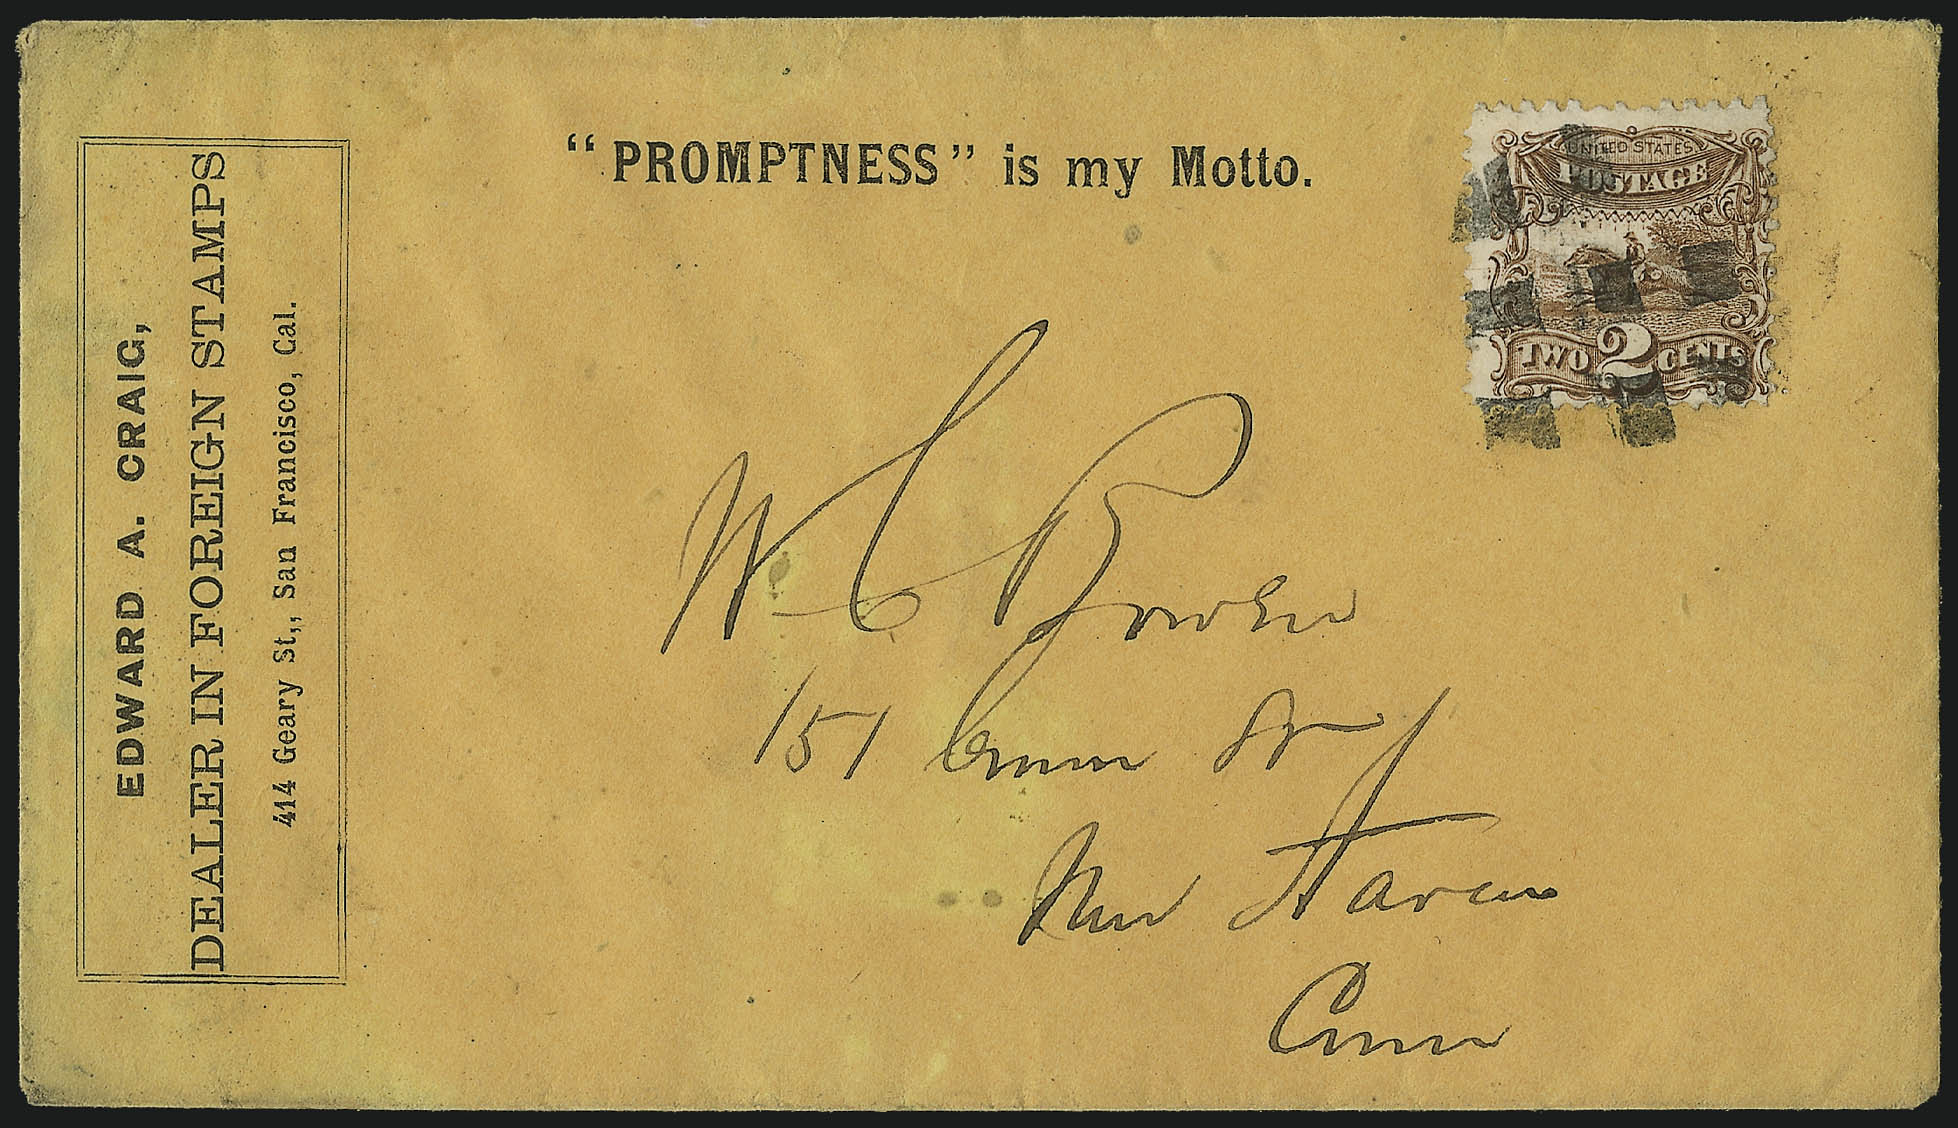 EDWARD A. CRAIG,
DEALER IN FOREIGN STAMPS
414 Geary St,, San Francisco, Cal.
“PROMPTNESS” is my Motto.
UNITED STATES
POSTAGE
TWO 2 CENTS
W C Bowen
151 St
New Haven
Conn